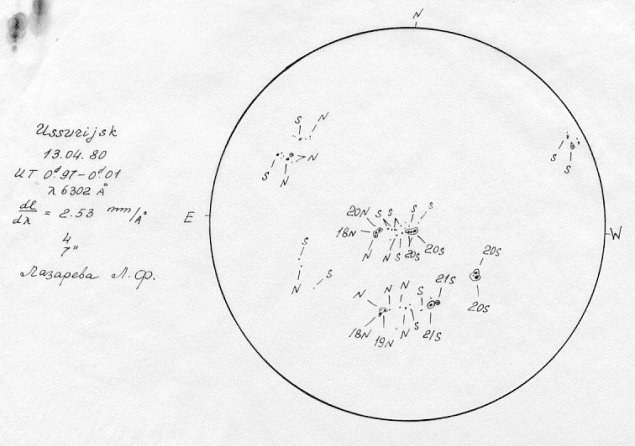 N
Ussurijsk
13.04.80
UT 0ᵈ.97–0ᵈ.01
λ 6302 Å
dl/dλ = 2.53 mm/Å
4
7"
Лазарева Л.Ф.
E
W
S N
S N N
S S
20N S S S S
18N
N N S 20S 20S
S
N S
20S
20S
N N N S 21S
18N 19N N S 21S